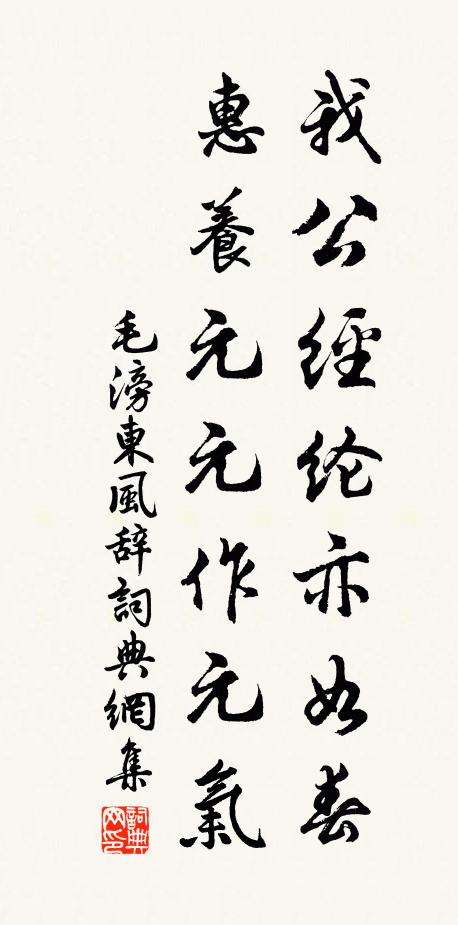 我公經纶亦如春
惠養元元作元氣
毛滂東風辞詞典網集
詞典网印